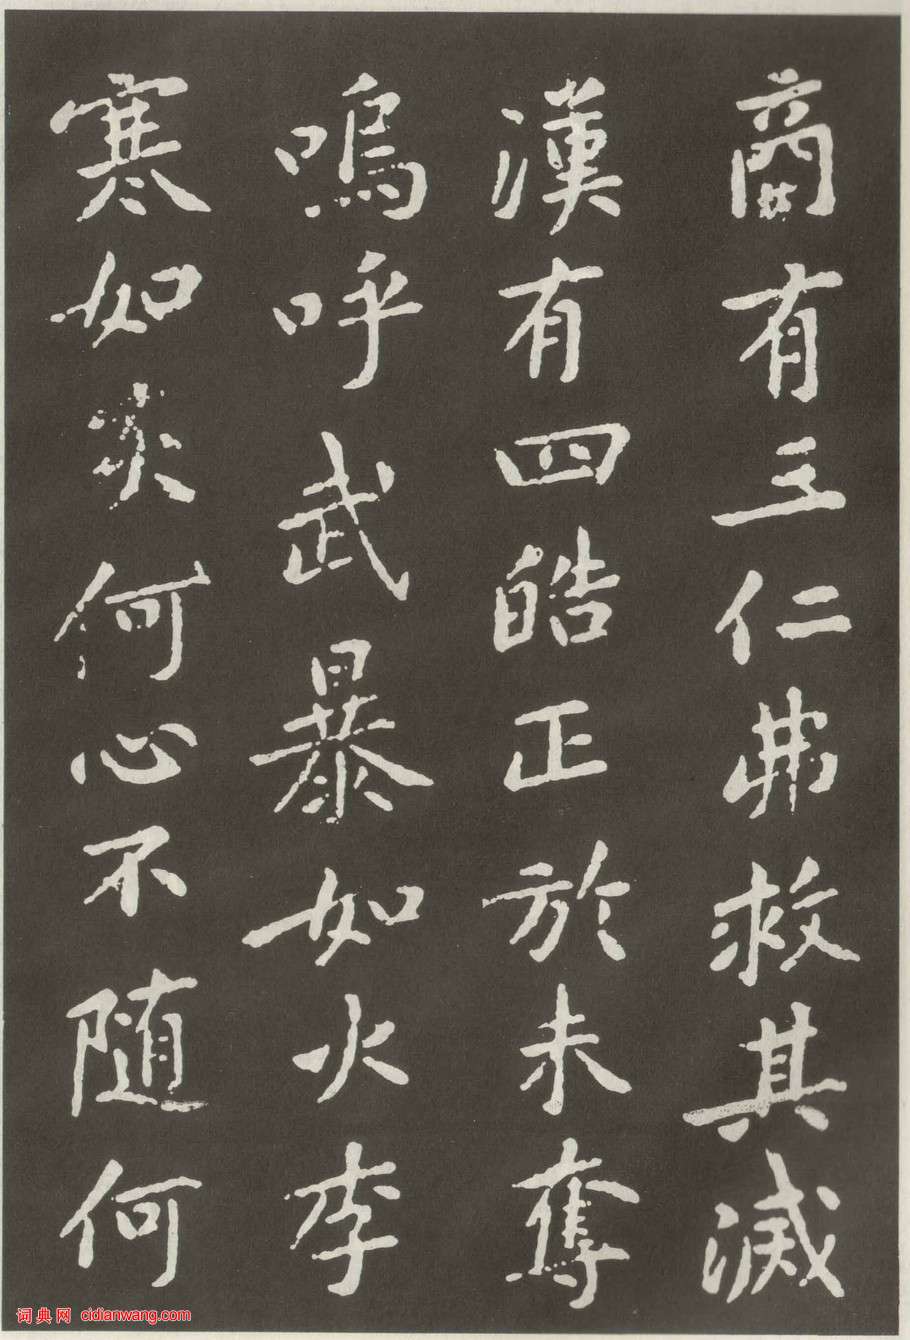 商有三仁弗救其滅
漢有四皓正於未奪
嗚呼武暴如火李
寒如炎何心不隨何
词典网 cidianwang.com